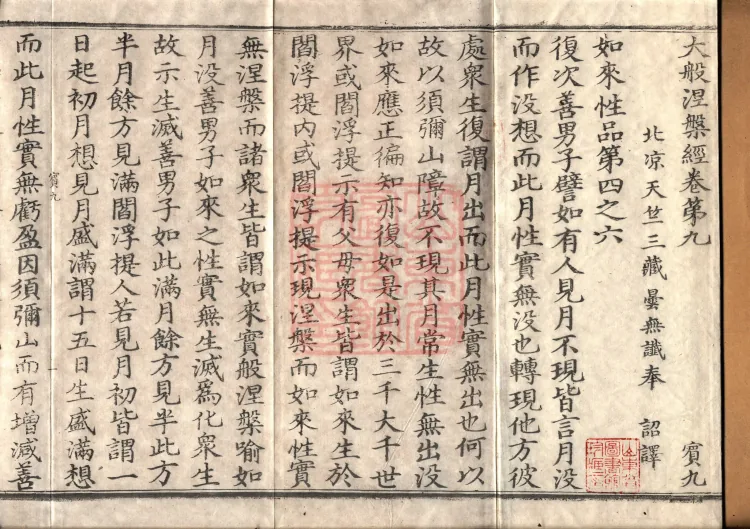 大般涅槃經卷第九 賓九
北凉天竺三藏曇無讖奉 詔譯
如來性品第四之六
復次善男子譬如有人見月不現皆言月没
而作没想而此月性實無没也轉現他方彼
處衆生復謂月出而此月性實無出也何以
故以須彌山障故不現其月常生性無出没
如來應正徧知亦復如是出於三千大千世
界或閻浮提示有父母衆生皆謂如來生於
閻浮提内或閻浮提示現涅槃而如來性實
無涅槃而諸衆生皆謂如來實般涅槃喻如
月没善男子如來之性實無生滅爲化衆生
故示生滅善男子如此滿月餘方見半此方
半月餘方見滿閻浮提人若見月初皆謂一
賓九
日起初月想見月盛滿謂十五日生盛滿想
而此月性實無虧盈因須彌山而有增減善